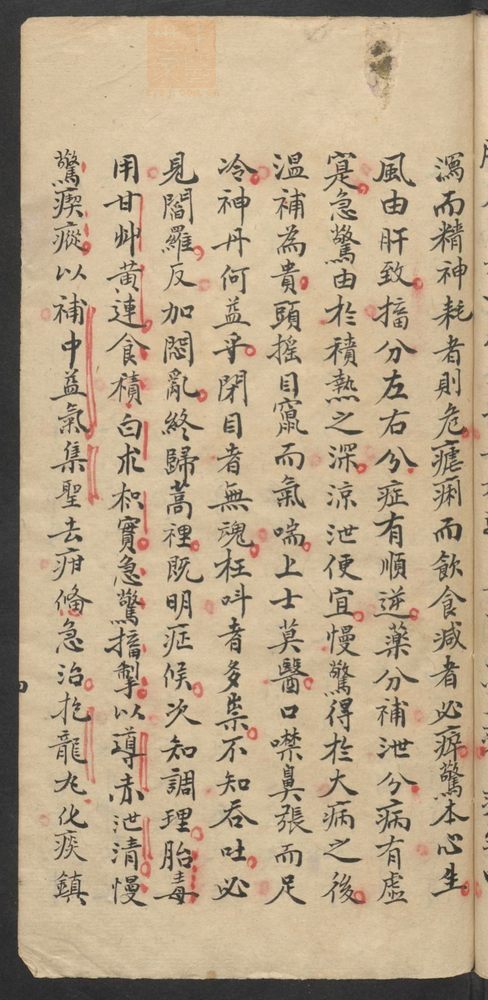 瀉而精神耗者則危瘧痢而飲食減者必瘁驚本心生
風由肝致搐分左右兮症有順逆藥分補泄兮病有虛
寔急驚由於積熱之深涼泄便宜慢驚得於大病之後
溫補為貴頭搖目竄而氣喘上士莫醫口噤鼻張而足
冷神丹何益乎閉目者無魂枉呌者多祟不知吞吐必
見閻羅反加悶亂終歸蒿裡既明症候次知調理胎毒
用甘艸黃連食積白朮枳實急驚搐掣以導赤泄清慢
驚瘈瘲以補中益氣集聖去疳偹急治抱龍丸化痰鎮